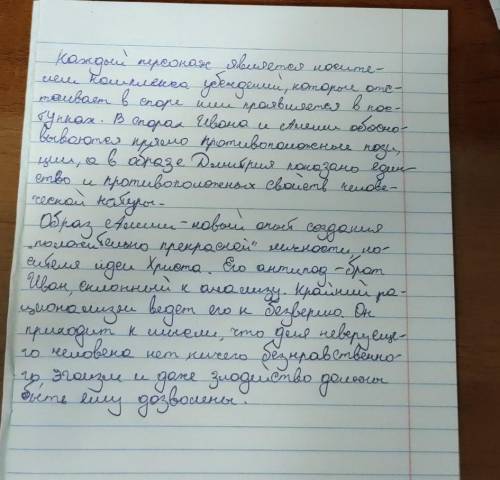 Каждый персонаж является носите-
лем комплекса убеждений, которые отс-
таивает в споре или проявляется в пос-
тупках. В спорах Ивана и Алеши обосно-
вываются прямо противоположные пози,
ции, а в образе Дмитрия показано един-
ство и противоположных свойств челове-
ческой натуры.
Образ Алеши - новый опыт создания
"положительно прекрасной" личности, но-
сителя идеи Христа. Его антипод - брат
Иван, склонный к анализу. Крайний ра-
ционализм ведет его к безверию. Он
приходит к мысли, что для неверующе-
го человека нет ничего безнравственно-
го, эгоизм и даже злодейство должны
быть ему дозволены.